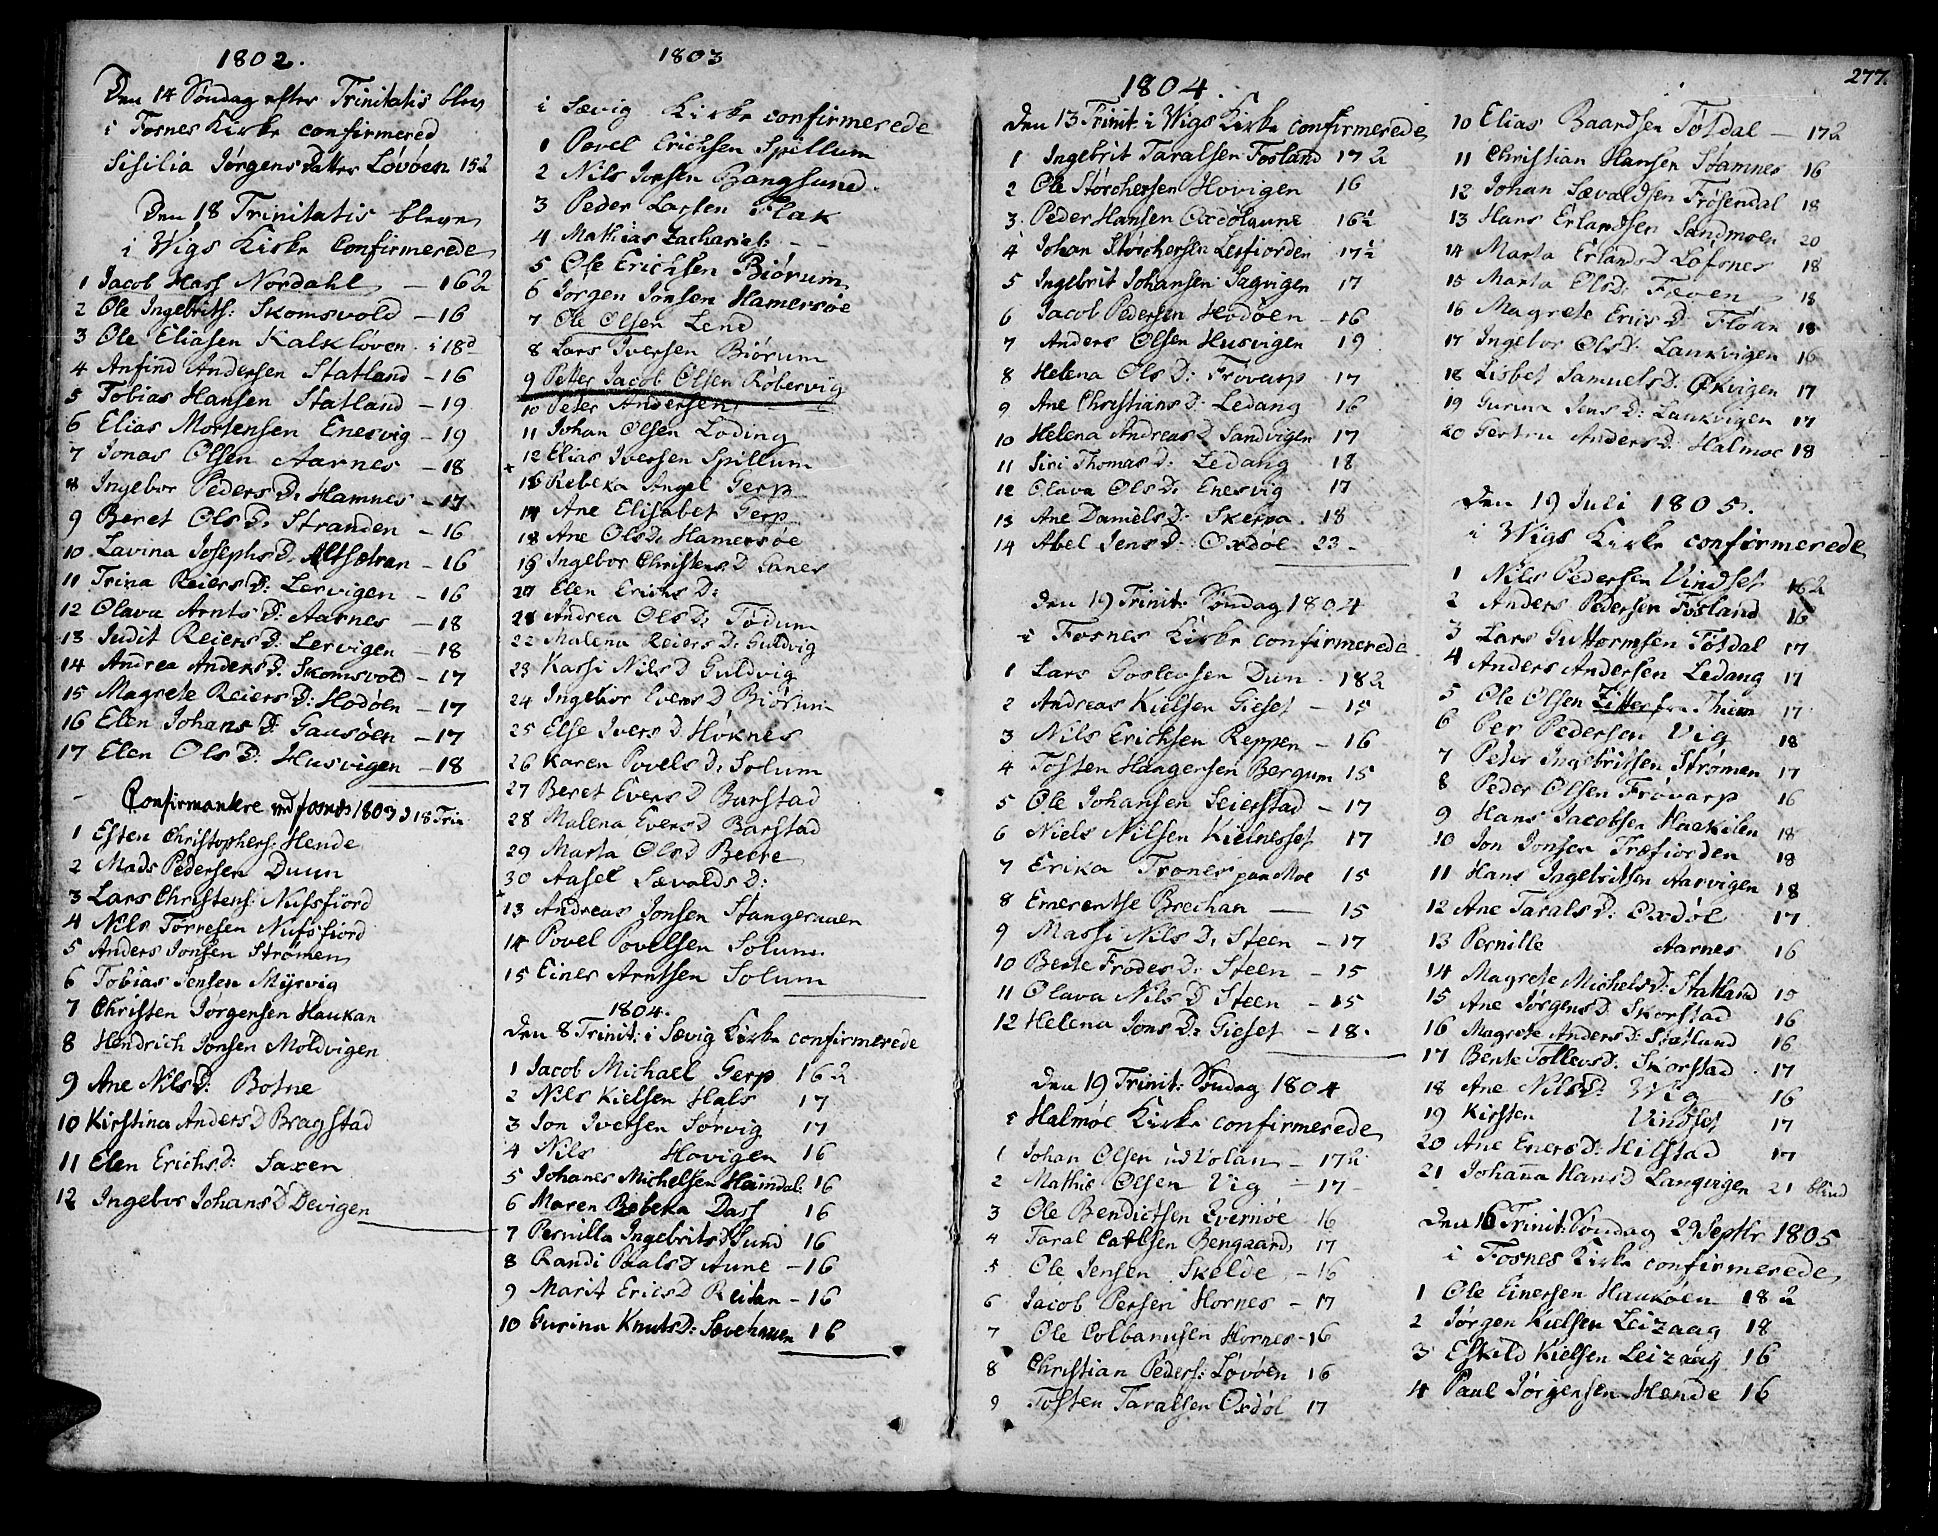 1802.
Den 14 Søndag efter Trinitatis blev
i Fosnes Kirke confirmered
Sisilia Jørgens Datter Lovøen 15 2
Den 18 Trinitatis bleve
i Wigs Kirke Confirmerede
1 Jacob Hass Nordahl - 16 2
2 Ole Ingebrits: Skomsvold - 16
3 Ole Eliasen Kalkløven i 18d
4 Anfind Andersen Statland - 16
5 Tobias Hansen Statland - 19
6 Elias Mortensen Enesvig - 19
7 Jonas Olsen Aarnes - 18
8 Ingebor Peders D: Hamnes - 17
9 Beret Ols D: Stranden - 16
10 Lavina Josephs D: Altsetran - 16
11 Trina Reiers D: Lervigen - 16
12 Olava Arnts D: Aarnes - 18
13 Judit Reiers D: Lervigen - 18
14 Andrea Anders D: Skomsvold - 17
15 Magrete Reiers D: Hodøen - 17
16 Elen Johans D: Gaasøen - 17
17 Elen Ols D: Husvigen - 18
Confirmantere ved 1803 D 18 Trin
1 Esten Christophers: Hende
2 Mads Pedersen Duun
3 Lars Christens: Nufsfiord
4 Nils Torresen Nufsfiord
5 Anders Jonsen Strømen
6 Tobias Jensen Myrvig
7 Christen Jørgensen Haukan
8 Hendrich Jonsen Moldvigen
9 Ane Nils D: Botne
10 Kirstina Anders D Bragstad
11 Elen Erichs D: Saxen
12 Ingebor Johans D Devigen
1803
i Sævig Kirke confirmerede
1 Povel Erichsen Spillum
2 Nils Jonsen Bangsund.
3 Peder Larsen Flak
4 Mathias Zachariæs: - -
5 Ole Erichsen Biørum
6 Jørgen Jonsen Hamersøe
7 Ole Olsen Lend
8 Lars Iversen Biørum
9 Petter Jacob Olsen Røbervig
10 Peter Andersen
11 Johan Olsen Loding
12 Elias Iversen Spillum
16 Rebeka Angel Gerp
17 Ane Elisabet Gerp
18 Ane Ols D: Hamersøe
19 Ingebor Christens D Lanes
20 Elen Erichs D:
21 Andrea Ols D: Tødum
22 Malena Reiers D: Guldvig
23 Kassi Nils D Guldvig
24 Ingebor Evens D Biørum
25 Else Ivers D. Høknes
26 Karen Povels D: Solum
27 Beret Evens D Barstad
28 Malena Evens D Barstad
29 Marta Ols D Beere
30 Aasel Sævalds D:
13 Andreas Jonsen Stangeraaen
14 Povel Povelsen Solum
15 Eines Arntsen Solum
1804.
Den 8 Trinit: i Sævig Kirke confirmerede
1 Jacob Michael Gerp 16 2
2 Nils Kielsen Hals 17
3 Jon Iversen Sørvig 17
4 Nils Hovigen 16
5 Johanes Michelsen Haindal: 16
6 Maren Bebeka Dass 16
7 Pernilla Ingebrits D Sund 16
8 Randi Paals D Aune - 16
9 Marit Erics D Reitan - 16
10 Gurina Knuts D: Sævehaven 16
277.
1804.
Den 13 Trinit: i Wigs Kirke confirmerede
1 Ingebrit Taralsen Fosland 17 2
2 Ole Størchersen Hovigen 16
3 Peder Hansen Oxdølaune 16½
4 Johan Størchersen Lesfiorden 17½
5 Ingebrit Johansen Sagvigen 17
6 Jacob Pedersen Hodøen - 16
7 Anders Olsen Husvigen 19
8 Helena Ols D: Frøvarp 17
9 Ane Christians D: Ledang 16
10 Helena Andreas D Sandvigen 17
11 Siri Thomas D: Ledang 18
12 Olava Ols D: Enesvig 17
13 Ane Daniels D: Skerpa. 18
14 Abel Jens D: Oxdøl 23 -
Den 19 Trinit: Søndag 1804
i Fosnes Kirke confirmerede
1 Lars Goslevsen Dun 18 2
2 Andreas Kielsen Gieset - 15
3 Nils Erichsen Reppen - 16
4 Tosten Haagensen Bergum 15
5 Ole Johansen Seierstad - 17
6 Niels Nilsen Kielnesset 17
7 Erika Trones paa Moe 15
8 Emerentse Brechan — 15
9 Massi Nils D: Steen - 17
10 Bente Frodes D: Steen - 15
11 Olava Nils D Steen - 15
12 Helena Jons D: Gieset - 18.
Den 19 Trinit: Søndag 1804
i Halmøe Kirke confirmerede
1 Johan Olsen ud Volan - 17 2
2 Mathis Olsen Vig - 17 -
3 Ole Bendictsen Evernøe 16
4 Taral Carlsen Bengaard 17
5 Ole Jensen Skelde - 16
6 Jacob Persen Hornes - 17
7 Ole Colbanusen Hornes - 16
8 Christian Peders: Lovøen 16
9 Tosten Taralsen Oxdøl 17
10 Elias Baardsen Tøtdal - 17 2
11 Christian Hansen Stamnes 16
12 Johan Sævaldsen Frøsendal 18
13 Hans Erlandsen Sandmoen 20
14 Marta Erlands D Løfsnes 18
15 Marta Ols D: Faven 18
16 Magrete Erics D: Floan 18
17 Ingebor Ols D: Laukvigen 16
18 Lisbet Samuels D: Økvigen 17
19 Gurina Jens D: Laukvigen 17
20 Gertru Anders D: Halmoe 18
Den 19 Juli 1805.
i Wigs Kirke confirmerede
1 Nils Pedersen Vindset 16 2
2 Anders Pedersen Fosland 16
3 Lars Guttormsen Tøtdal 17
4 Anders Andersen Ledang 17
5 Ole Olsen fra Thiem 17
6 Per Pedersen Vig 18
7 Peter Ingebritsen Strømen 17
8 Peder Olsen Frøvarp 16
9 Hans Jacobsen Haakilen 18
10 Jon Jonsen Træfiorden 18
11 Hans Ingebritsen Aarvigen 18
12 Ane Tarals D: Oxdøl 17.
13 Pernille Aarnes 16
14 Magrete Michels D: Statland 15
15 Ane Jørgens D: Skorstad 16
16 Magrete Anders D: Statland 16
17 Bente Tollevs D: Skorstad 17
18 Ane Nils D: Wig 16
19 Kirsten Vindset 17
20 Ane Eners D: Hilstad 17
21 Johanna Hans D Langvigen 21 blind
Den 16 Trinit: Søndag 29 Septbr 1805
i Fosnes Kirke confirmerede
1 Ole Einersen Haukøen 18 2
2 Jørgen Kielsen Leizaag 18
3 Eskild Kielsen Leizaag 16
4 Paul Jørgensen Hende 16